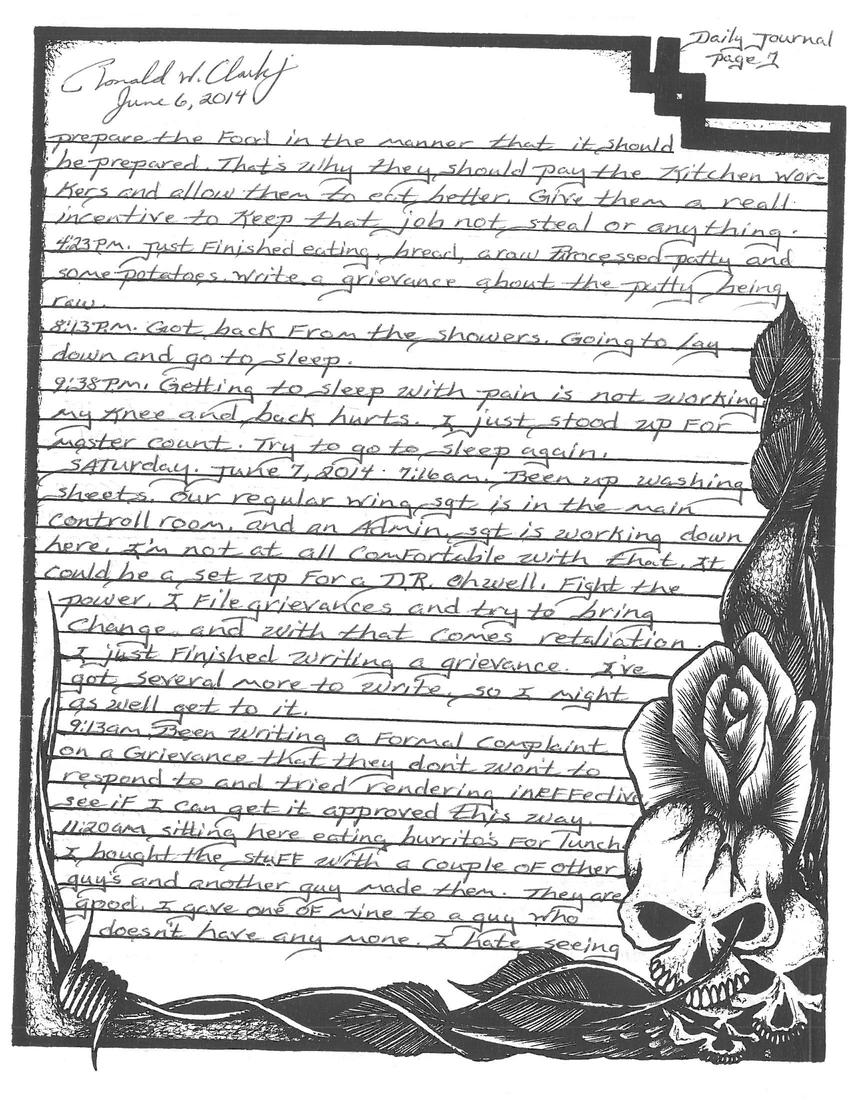 Daily Journal
page 7
Ronald W. Clark jr
June 6, 2014
prepare the Food in the manner that it should
be prepared. That's why they should pay the Kitchen wor-
kers and allow them to eat better. Give them a reall
incentive to Keep that job not steal or anything.
4:23 P.M. Just Finished eating, bread, a raw Processed patty and
some potatoes. Write a grievance about the patty being
raw.
8:13 P.M. Got back From the showers. Going to lay
down and go to sleep.
9:38 P.M. Getting to sleep with pain is not working
My Knee and back hurts. I just stood up For
master count. Try to go to sleep again.
SATurday. June 7, 2014. 7:16am. Been up washing
sheets. Our regular wing sgt is in the main
controll room, and an Admin. sgt is working down
here. I'm not at all comFortable with that. It
could be a set up For a D.R. Oh well. Fight the
power. I File grievances and try to bring
Change and with that comes retaliation.
I just Finished writing a grievance. I've
got several more to write, so I might
as well get to it.
9:13am Been writing a Formal Complaint
on a Grievance that they don't won't to
respond to and tried rendering inEFFective
see iF I can get it approved this way.
11:20am sitting here eating burrito's For lunch.
I bought the stuFF with a couple oF other
guy's and another guy made them. They are
good. I gave one oF mine to a guy who
doesn't have any mone. I hate seeing